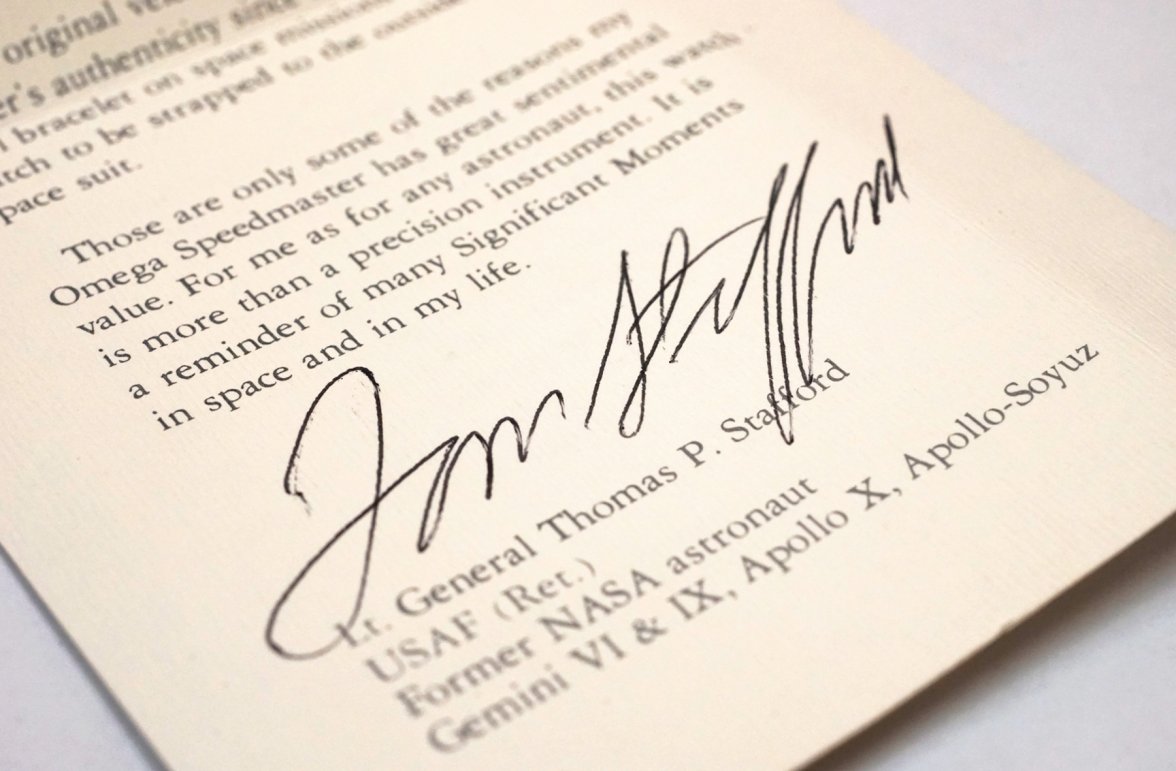 original
er's authenticity since
bracelet on space missio
tch to be strapped to the outside
pace suit.
Those are only some of the reasons my
Omega Speedmaster has great sentimental
value. For me as for any astronaut, this watch
is more than a precision instrument. It is
a reminder of many Significant Moments
in space and in my life.
Tom Stafford
Lt. General Thomas P. Stafford
USAF (Ret.)
Former NASA astronaut
Gemini VI & IX, Apollo X, Apollo-Soyuz